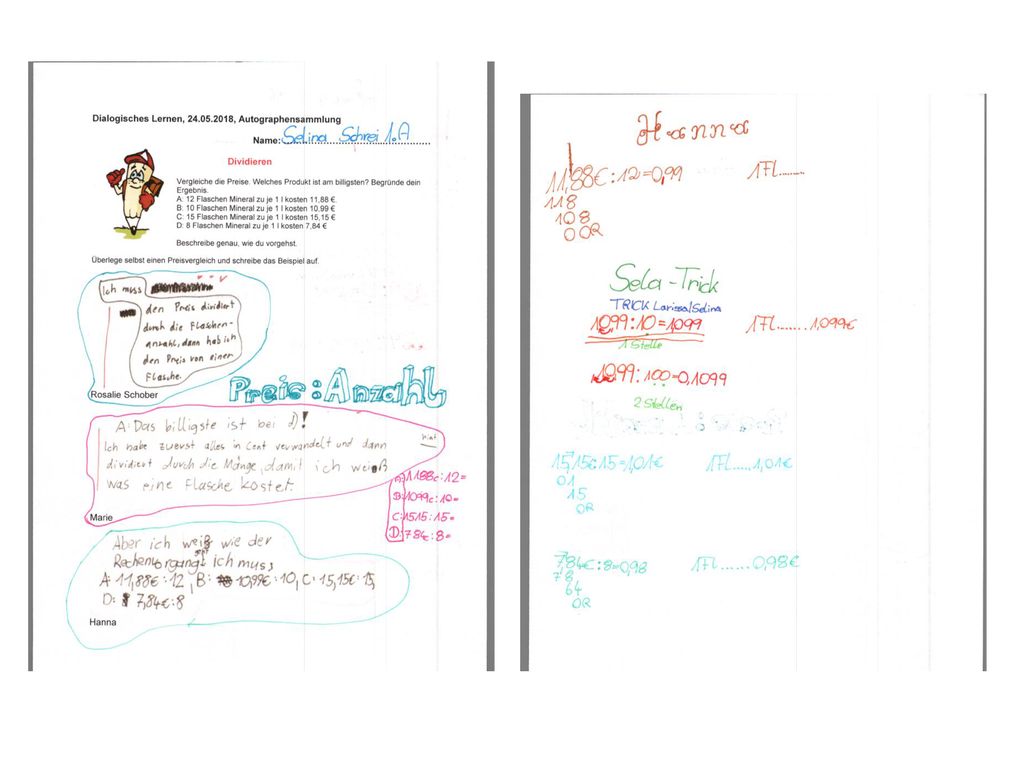 Dialogisches Lernen, 24.05.2018, Autographensammlung
Name: Selina Schrei 1.A
Dividieren
Vergleiche die Preise. Welches Produkt ist am billigsten? Begründe dein
Ergebnis.
A: 12 Flaschen Mineral zu je 1 l kosten 11,88 €.
B: 10 Flaschen Mineral zu je 1 l kosten 10,99 €
C: 15 Flaschen Mineral zu je 1 l kosten 15,15 €
D: 8 Flaschen Mineral zu je 1 l kosten 7,84 €
Beschreibe genau, wie du vorgehst.
Überlege selbst einen Preisvergleich und schreibe das Beispiel auf.
Ich muss
den Preis dividiert
durch die Flaschen-
anzahl, dann hab ich
den Preis von einer
Flasche.
Rosalie Schober
Preis:Anzahl
A: Das billigste ist bei d)!
Ich habe zuerst alles in Cent verwandelt und dann
dividiert durch die Mänge, damit ich weiß
was eine Flasche kostet.
Marie
A:1188c:12=
B:1099c:10=
C:1515:15=
D:784c:8=
Aber ich weiß wie der
Rechenvorgang geht ich muss
A: 11,88€:12, B: 10,99€:10, C: 15,15€:15,
D: 7,84€:8
Hanna
Hanna
11,88€:12=0,99 1Fl........
118
108
00R
Sela-Trick
TRICK Larissa/Selina
1099:10=1,099 1Fl........1,099€
1 Stelle
1099:100=0,1099
2 Stellen
15,15€:15=1,01€ 1Fl.....1,01€
01
15
0R
7,84€:8=0,98 1Fl.......0,98€
78
64
0R